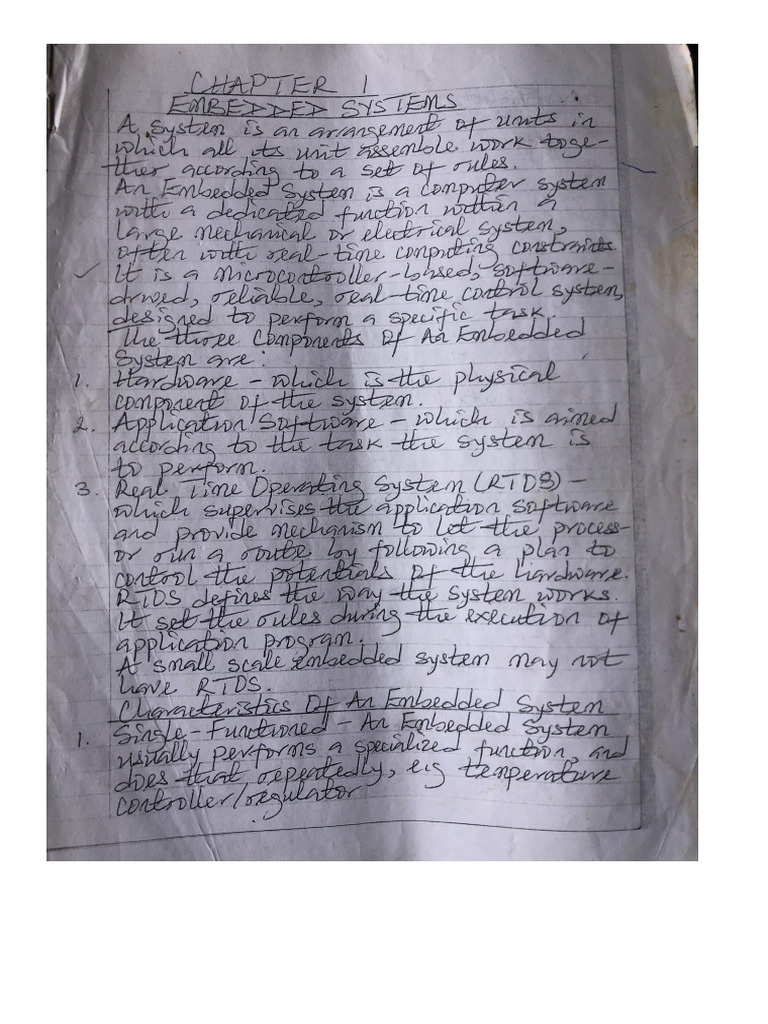 CHAPTER 1
EMBEDDED SYSTEMS
A System is an arrangement of units in
which all its unit assemble work toge-
ther according to a set of rules.
An Embedded System is a computer system
with a dedicated function within a
large mechanical or electrical system,
often with real-time computing constraints.
It is a Microcontroller-based, software-
drived, reliable, real-time control system,
designed to perform a specific task.
The three Components Of An Embedded
System are:
1. Hardware - which is the physical
component of the system.
2. Application Software - which is aimed
according to the task the system is
to perform.
3. Real Time Operating System (RTOS) -
which supervises the application software
and provide mechanism to let the process-
or run a route by following a plan to
control the potentials of the hardware.
RTOS defines the way the system works.
It set the rules during the execution of
application program.
A small scale embedded system may not
have RTOS.
Characteristics Of An Embedded System
1. Single-Functioned - An Embedded System
usually performs a specialized function, and
does that repeatedly, e.g temperature
controller/regulator